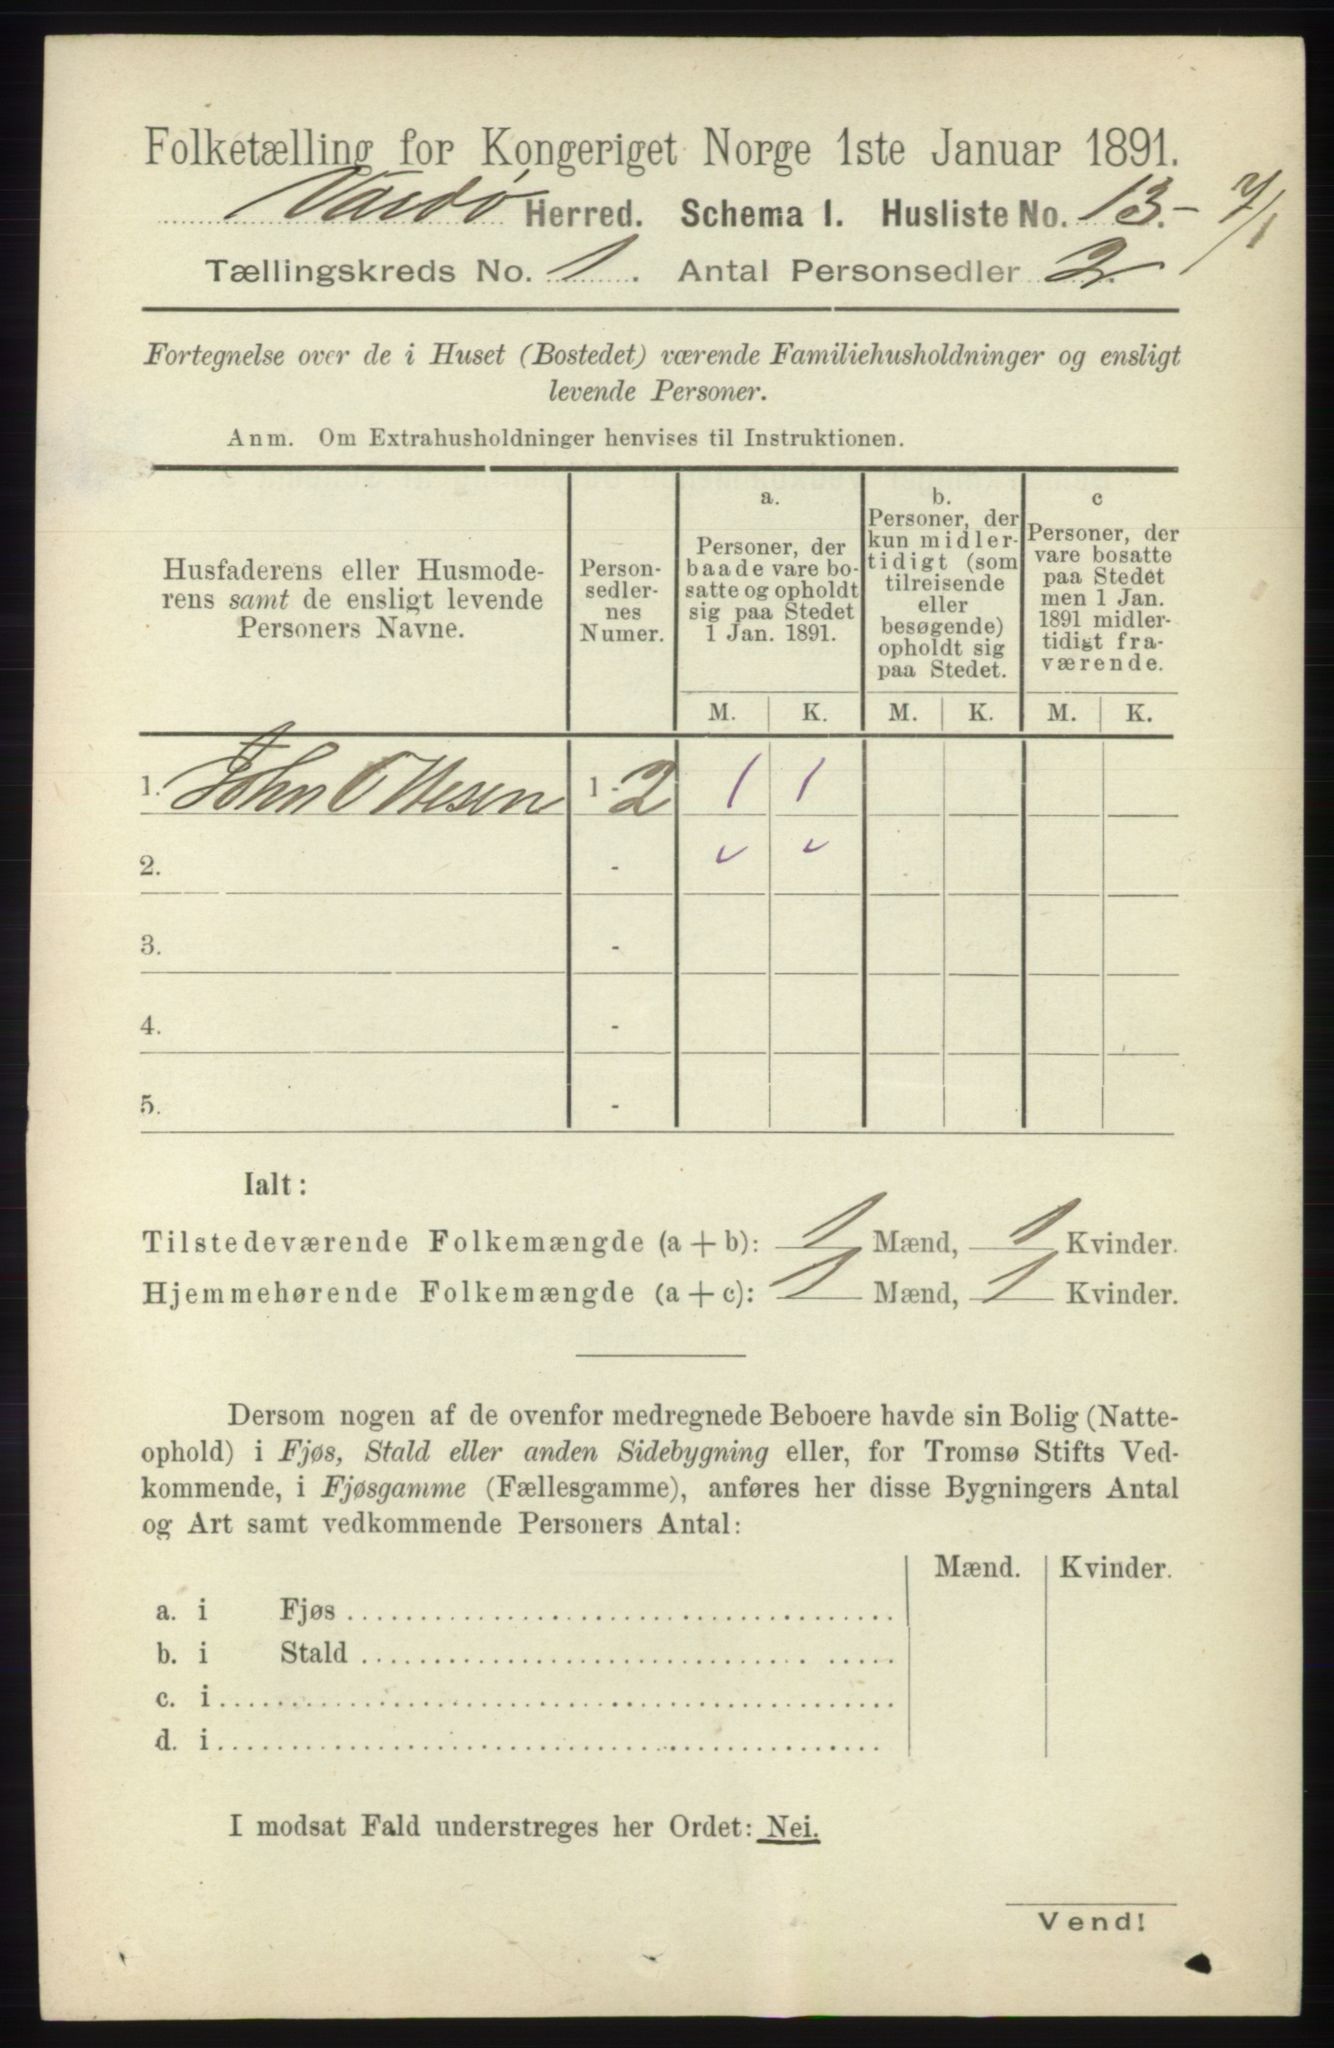 Folketælling for Kongeriget Norge 1ste Januar 1891.
Vardø Herred. Schema I. Husliste No. 13.- 7/1
Tællingskreds No. 1. Antal Personsedler 2.
Fortegnelse over de i Huset (Bostedet) værende Familiehusholdninger og ensligt
levende Personer.
Anm. Om Extrahusholdninger henvises til Instruktionen.
Husfaderens eller Husmode-
rens samt de ensligt levende
Personers Navne.
Person-
sedler-
nes
Numer.
a.
Personer, der
baade vare bo-
satte og opholdt
sig paa Stedet
1 Jan. 1891.
b.
Personer, der
kun midler-
tidigt (som
tilreisende
eller
besøgende)
opholdt sig
paa Stedet.
c
Personer, der
vare bosatte
paa Stedet
men 1 Jan.
1891 midler-
tidigt fra-
værende.
M. K. M. K. M. K.
1. John Ottesen 1-2 1 1
2. -
3. -
4. -
5. -
Ialt:
Tilstedeværende Folkemængde (a+b): 1 Mænd, 1 Kvinder.
Hjemmehørende Folkemængde (a+c): 1 Mænd, 1 Kvinder.
Dersom nogen af de ovenfor medregnede Beboere havde sin Bolig (Natte-
ophold) i Fjøs, Stald eller anden Sidebygning eller, for Tromsø Stifts Ved-
kommende, i Fjøsgamme (Fællesgamme), anføres her disse Bygningers Antal
og Art samt vedkommende Personers Antal:
Mænd. Kvinder.
a. i Fjøs
b. i Stald
c. i
d. i
I modsat Fald understreges her Ordet: Nei.
Vend!